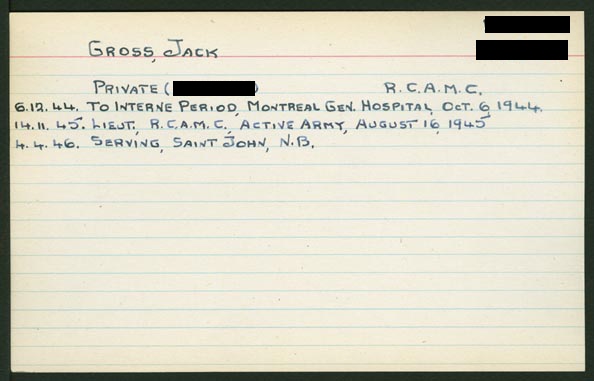 GROSS, JACK
PRIVATE ( ) R.C.A.M.C.
6.12.44. TO INTERNE PERIOD, MONTREAL GEN. HOSPITAL, OCT. 6, 1944.
14.11.45. LIEUT., R.C.A.M.C., ACTIVE ARMY, AUGUST 16, 1945
4.4.46. SERVING, SAINT JOHN, N.B.